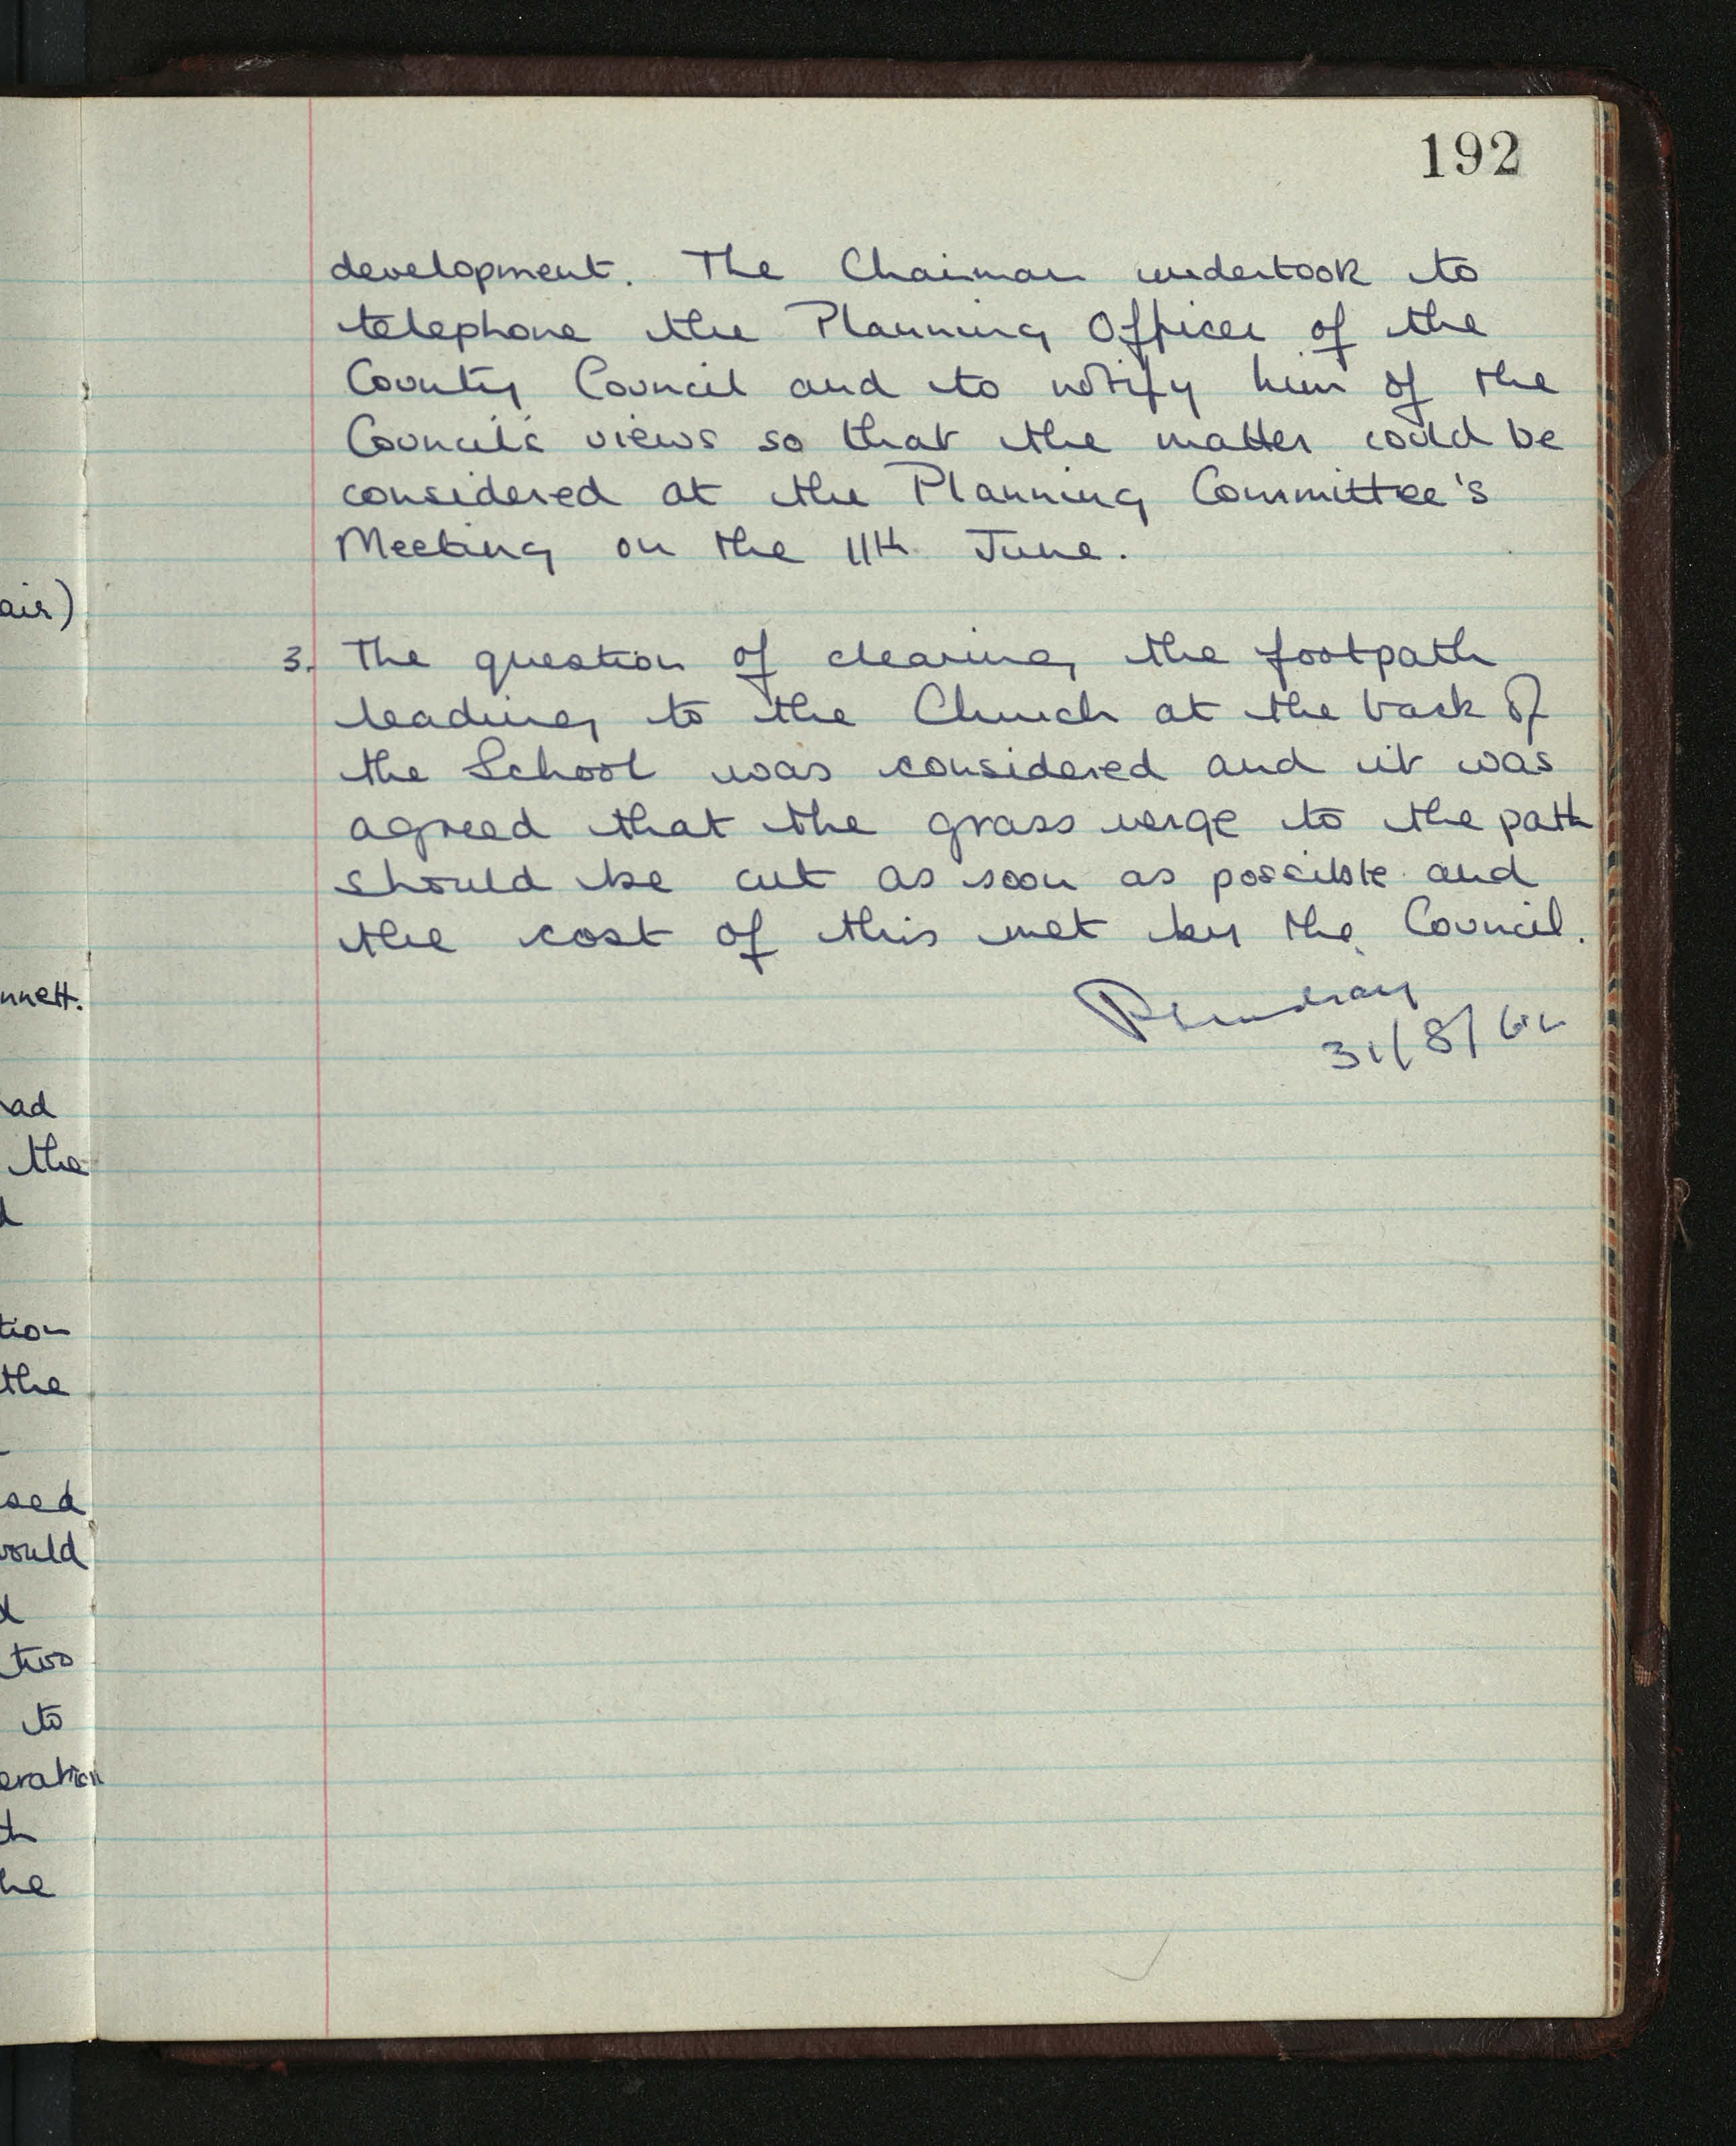 192
development. The Chairman undertook to
telephone the Planning Officer of the
County Council and to notify him of the
Council's views so that the matter could be
considered at the Planning Committee's
Meeting on the 11th June.
3. The question of clearing the footpath
leading to the Church at the back of
the School was considered and it was
agreed that the grass verge to the path
should be cut as soon as possible and
the cost of this met by the Council.
31/8/62
air)
nnett.
ad
the
d
tion
the
sed
ould
d
two
to
eration
th
he